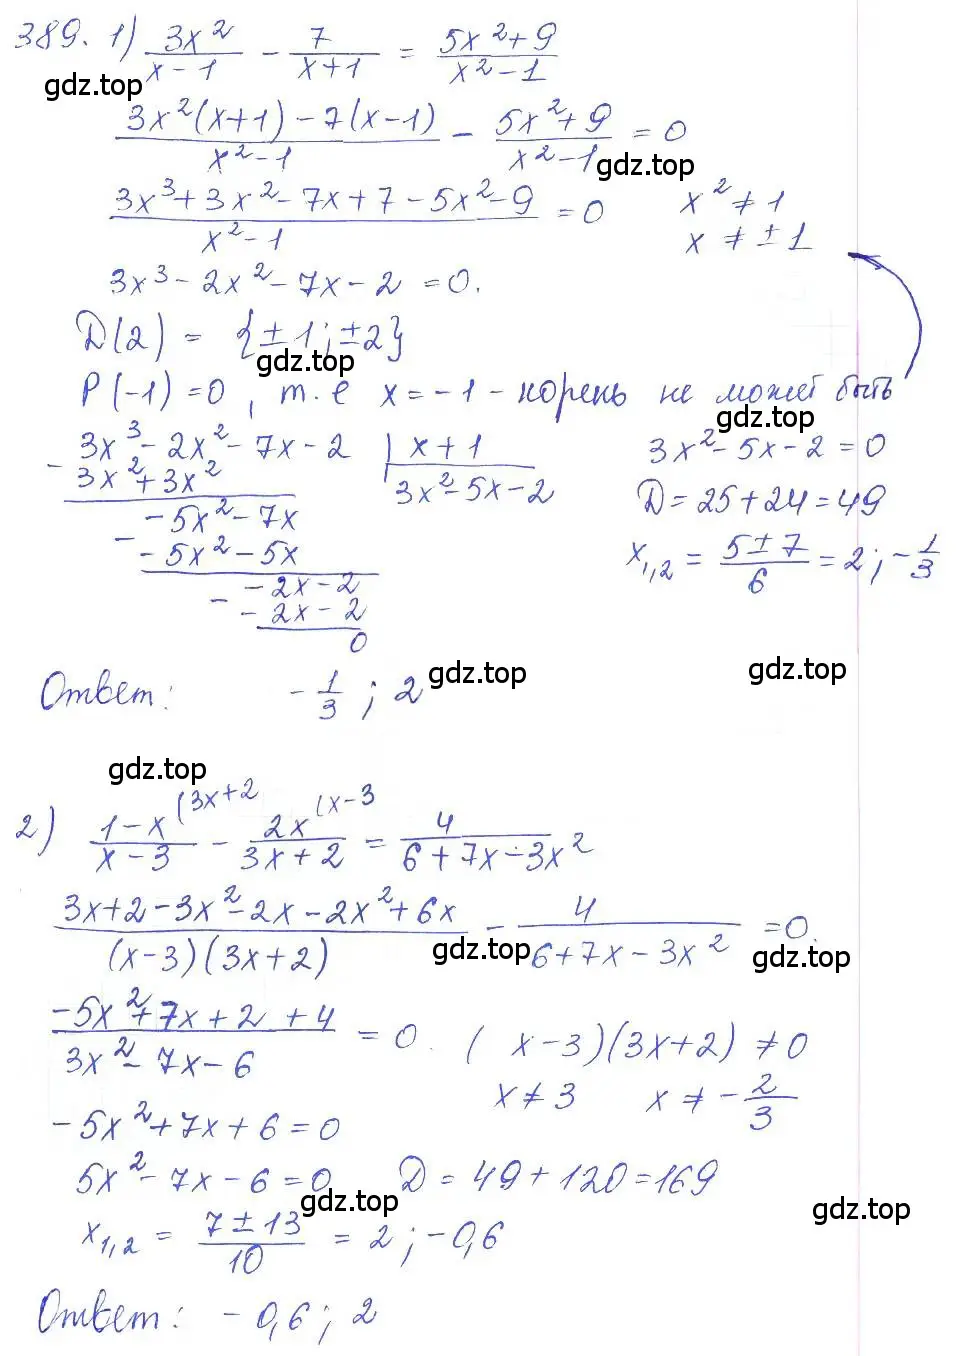 389. 1) 3x²/(x-1) - 7/(x+1) = (5x²+9)/(x²-1)
gdz.top
(3x²(x+1)-7(x-1))/(x²-1) - (5x²+9)/(x²-1) = 0
gdz.top
(3x³+3x²-7x+7-5x²-9)/(x²-1) = 0    x² ≠ 1
x ≠ ±1
3x³-2x²-7x-2 = 0.
D(2) = {±1; ±2}
gdz.top
P(-1)=0, т.е x=-1 - корень не может быть
gdz.top
3x³-2x²-7x-2 | x+1    3x²-5x-2=0
- 3x²+3x²    3x²-5x-2
-5x²-7x    D=25+24=49
- -5x²-5x    x₁,₂ = (5±7)/6 = 2; -1/3
-2x-2
- -2x-2
0
gdz.top
gdz.top
Ответ: -1/3; 2
gdz.top
2) (1-x)/(x-3) (3x+2 - 2x/(3x+2) (x-3 = 4/(6+7x-3x²)
(3x+2-3x²-2x-2x²+6x)/((x-3)(3x+2)) - 4/(6+7x-3x²) = 0.
gdz.top gdz.top
(-5x²+7x+2+4)/(3x²-7x-6) = 0.    (x-3)(3x+2) ≠ 0
x ≠ 3    x ≠ -2/3
-5x²+7x+6=0
5x²-7x-6=0    D=49+120=169
gdz.top gdz.top
x₁,₂ = (7±13)/10 = 2; -0,6
Ответ: -0,6; 2